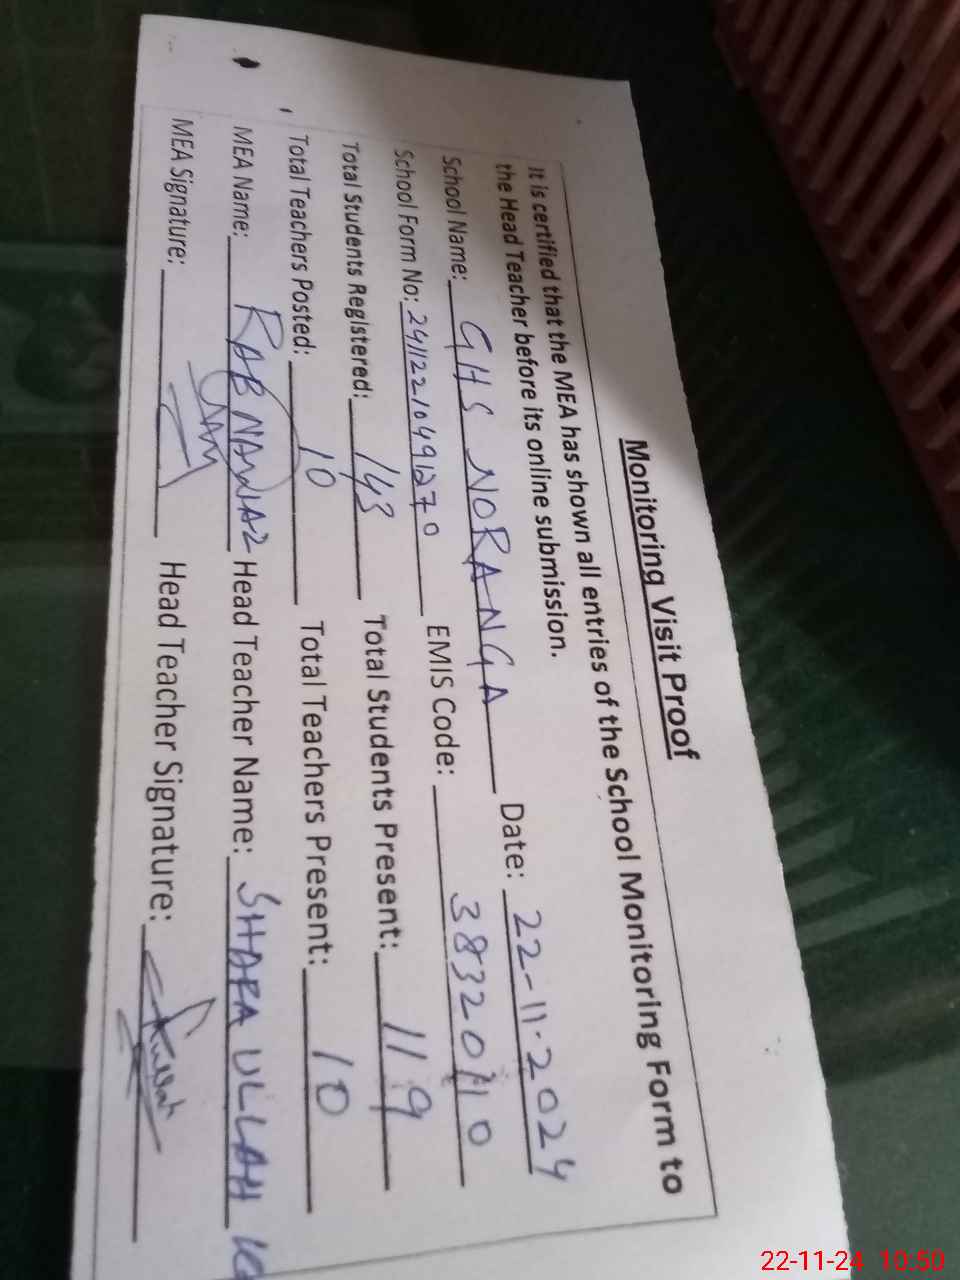 Monitoring Visit Proof
It is certified that the MEA has shown all entries of the School Monitoring Form to
the Head Teacher before its online submission.
School Name: GHS NORANGA Date: 22-11-2024
School Form No: 24112210491270 EMIS Code: 38320110
Total Students Registered: 143 Total Students Present: 119
Total Teachers Posted: 10 Total Teachers Present: 10
MEA Name: RAB NAWAZ Head Teacher Name: ULLAH
MEA Signature: Head Teacher Signature:
22-11-24 10:50